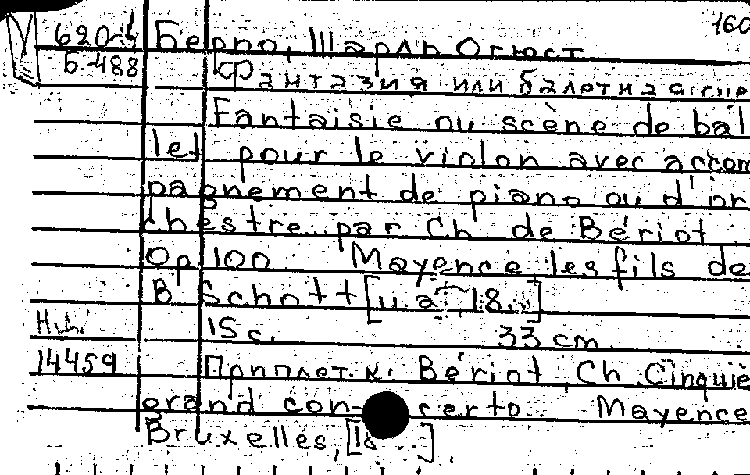 160
620-4 Берио, Шарль Огюст
Б-488 Фантазия или балетная сце
Fantaisie ou scène de bal
let pour le violon avec accom
pagnement de piano ou d'or
chestre par Ch de Bériot
Op 100 Mayence les fils de
B Schott [18..]
15 с. 33 cm
14459 Приплет. к. Bériot, Ch Cinquiè
grand concerto Mayence
Bruxelles, [18...]